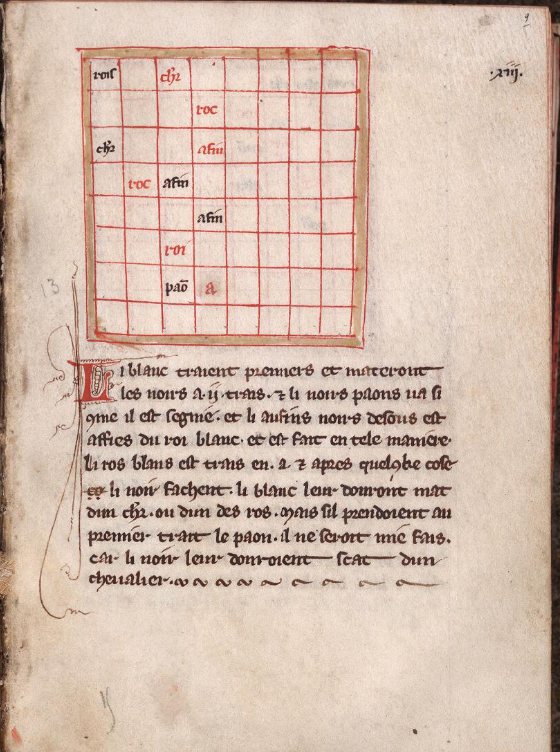 9
.xiij.
rois chr
roc
chr afin
roc afin
afin
roi
paō a
13
Li blanc traient premiers et materont
les noirs a .ij. trais. ⁊ li noirs paons va si
9me il est segnie. et li aufins noirs desous est
affies du roi blanc. et est fait en tele maniere.
li ros blans est trais en .a. ⁊ apres quelq̄be cose
li noir fachent. li blanc leur donront mat
dun chr. ou dun des ros. mais sil prendoient au
premier trait le paon. il ne seroit mie fais.
car li noir leur donroient scac dun
chevalier.